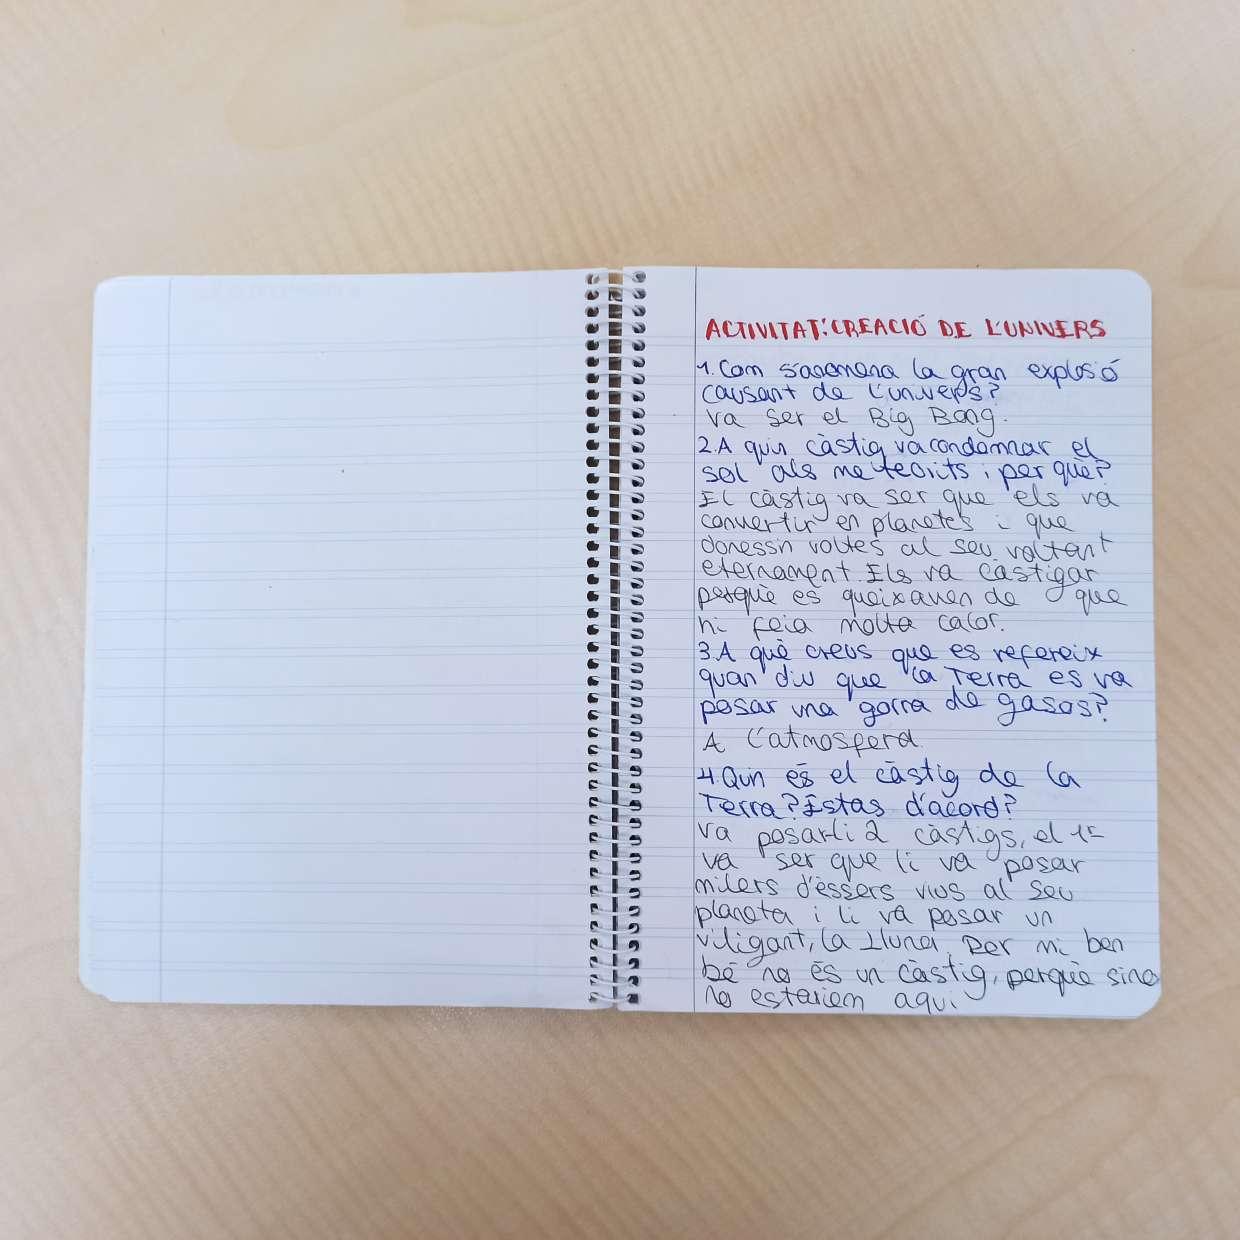 ACTIVITAT: CREACIÓ DE L'UNIVERS
1. Com s'anomena la gran explosió
causant de l'univers?
va ser el Big Bang.
2. A quin càstig va condemnar el
sol als meteorits i per què?
El càstig va ser que els va
convertir en planetes i que
donessin voltes al seu voltant
eternament. Els va castigar
perquè es queixaven de que
hi feia molta calor.
3. A què creus que es refereix
quan diu que la Terra es va
posar una gorra de gasos?
A l'atmosfera.
4. Quin és el càstig de la
Terra? Estas d'acord?
Va posar-li 2 càstigs, el 1er
va ser que li va posar
milers d'éssers vius al seu
planeta i li va posar un
viligant, la Lluna. Per mi ben
bé no és un càstig, perquè sino
no estariem aquí